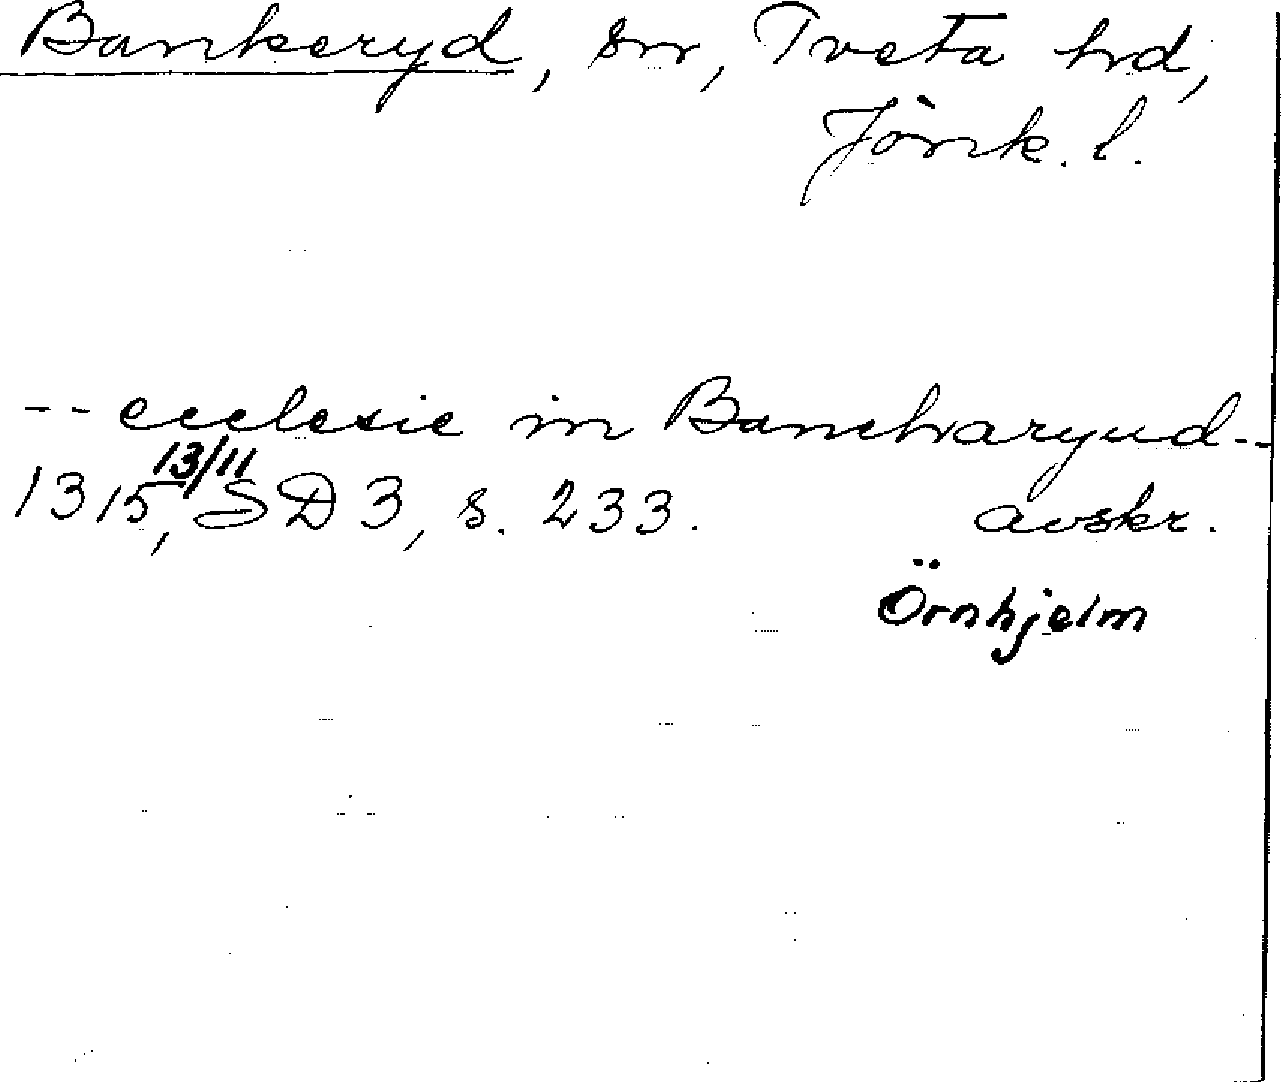 Bankeryd, sn, Tveta hd,
Jönk. l.
-- ecclesie in Bancharyud --
13/11
1315, SD 3, s. 233. avskr.
Örnhjelm